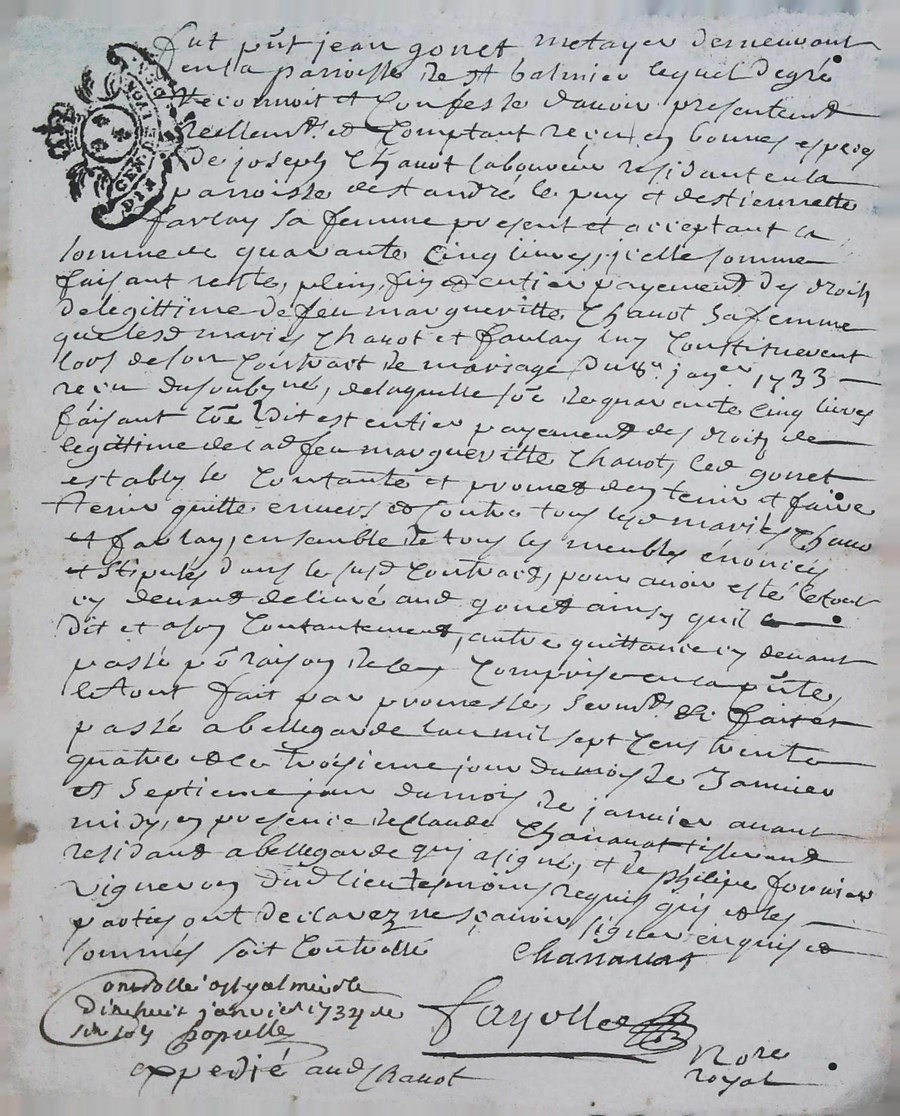 fut pnt jean gonet metayer demeurant
en la parroisse de st balmier lequel de gré
reconnoit et Confesse davoir presentemt
reellemt et Comptant recu en bonnes especes
de joseph Chauot laboureur residant en la
parroisse de st andré le puy et destiennette
faulay sa femme present et acceptant la
somme de quarante Cinq livres, jcelle somme
faisant reste, plein, fin et entier payement des droits
de legittime de feu margueritte Chauot sa femme
que lesd mariés Chauot et faulay luy Constituerent
lors de son Contract de mariage du jaer 1733
recu du soubzné, de laquelle soe de quarante Cinq livres
faisant Coe dit est entier payement des droits de
legittime de lad feu margueritte Chauot, led gonet
est Contante et promet den tenir et faire
tenir quitte envers et Contre tous lesd mariés Chauot
et faulay, ensemble de tous les meubles énoncés
et stipulés dans le susd Contract, pour avoir esté le tout
cy devant deliuré aud gonet ainsy quil a
dit et a son Contantement, autre quittance cy devant
passé pr raison de ce Comprise en la pnte,
le tout fait par promesse, sermt
passé a bellegarde lan mil sept Cens trente
quatre et le troisieme jour du mois de Januier
et septieme jour du mois de januier auant
midy, en presence de Claude Chanauat tisserand
residant a bellegarde qui a signé, et de philipe fournier
vigneron dud lieu tesmoins requis qui et les
parties ont declarez ne scauoir signer enquis et
sommés soit Controllé Chanauat
Controllé a st galmier le
dixhuit januier 1734 
six sols
fayolle
Nore
royal
expedié aud Chauot